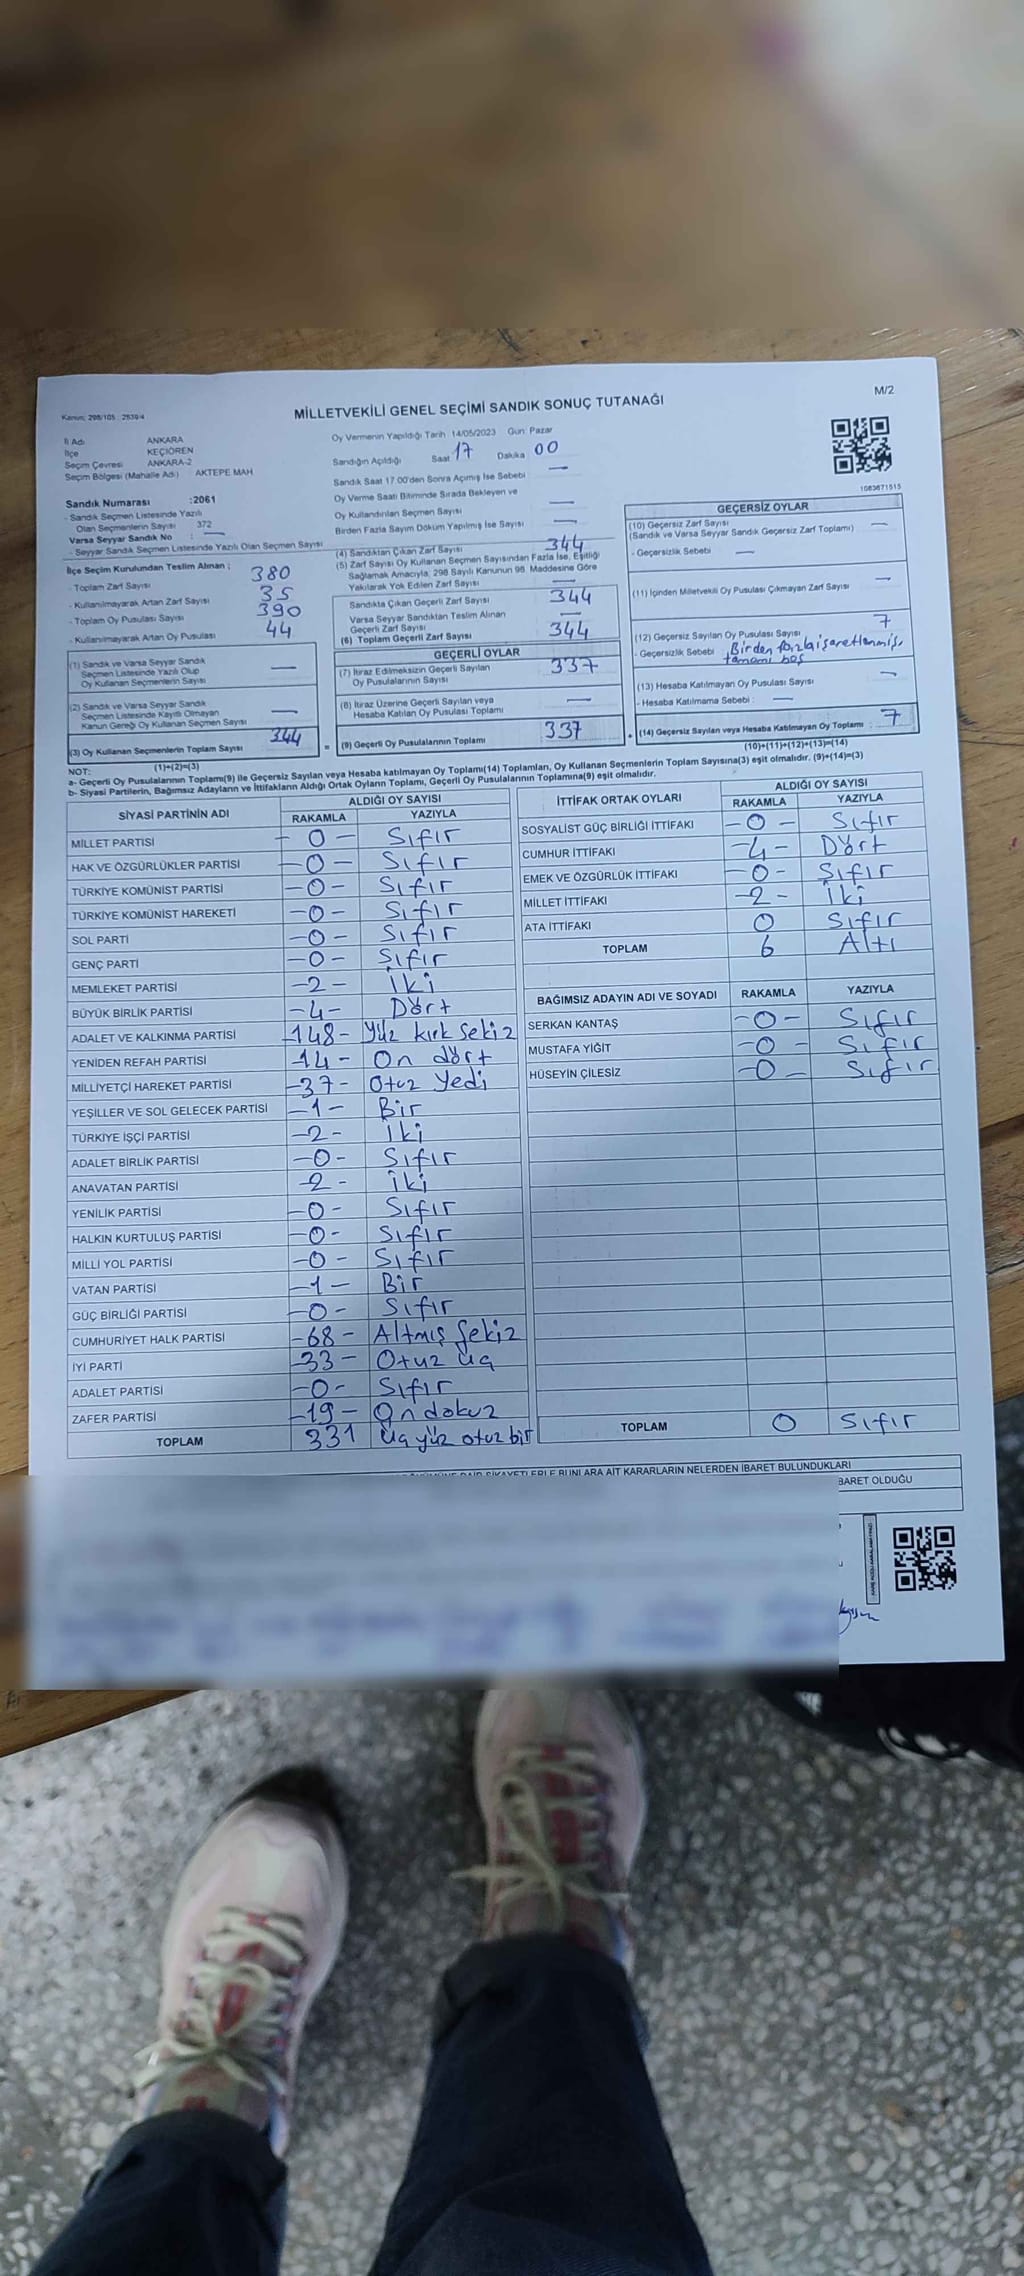 M/2
Kanun: 298/105 : 2839/4
MİLLETVEKİLİ GENEL SEÇİMİ SANDIK SONUÇ TUTANAĞI
İl Adı ANKARA
İlçe KEÇİÖREN
Seçim Çevresi ANKARA-2
Seçim Bölgesi (Mahalle Adı) AKTEPE MAH
Sandık Numarası :2061
- Sandık Seçmen Listesinde Yazılı
Olan Seçmenlerin Sayısı 372
Varsa Seyyar Sandık No : —
- Seyyar Sandık Seçmen Listesinde Yazılı Olan Seçmen Sayısı
İlçe Seçim Kurulundan Teslim Alınan ;
- Toplam Zarf Sayısı 380
- Kullanılmayarak Artan Zarf Sayısı 35
- Toplam Oy Pusulası Sayısı 390
- Kullanılmayarak Artan Oy Pusulası 44
(1) Sandık ve Varsa Seyyar Sandık
Seçmen Listesinde Yazılı Olup
Oy Kullanan Seçmenlerin Sayısı —
(2) Sandık ve Varsa Seyyar Sandık
Seçmen Listesinde Kayıtlı Olmayan
Kanun Gereği Oy Kullanan Seçmen Sayısı —
(3) Oy Kullanan Seçmenlerin Toplam Sayısı 344
(1)+(2)=(3)
Oy Vermenin Yapıldığı Tarih :14/05/2023 Gün: Pazar
Sandığın Açıldığı Saat 17 Dakika 00
Sandık Saat 17.00'den Sonra Açılmış İse Sebebi —
Oy Verme Saati Bitiminde Sırada Bekleyen ve
Oy Kullandırılan Seçmen Sayısı —
Birden Fazla Sayım Döküm Yapılmış İse Sayısı —
(4) Sandıktan Çıkan Zarf Sayısı 344
(5) Zarf Sayısı Oy Kullanan Seçmen Sayısından Fazla İse, Eşitliği
Sağlamak Amacıyla, 298 Sayılı Kanunun 98. Maddesine Göre
Yakılarak Yok Edilen Zarf Sayısı —
Sandıkta Çıkan Geçerli Zarf Sayısı 344
Varsa Seyyar Sandıktan Teslim Alınan
Geçerli Zarf Sayısı —
(6) Toplam Geçerli Zarf Sayısı 344
GEÇERLİ OYLAR
(7) İtiraz Edilmeksizin Geçerli Sayılan
Oy Pusulalarının Sayısı 337
(8) İtiraz Üzerine Geçerli Sayılan veya
Hesaba Katılan Oy Pusulası Toplamı —
= (9) Geçerli Oy Pusulalarının Toplamı 337
1083671515
GEÇERSİZ OYLAR
(10) Geçersiz Zarf Sayısı
(Sandık ve Varsa Seyyar Sandık Geçersiz Zarf Toplamı) —
- Geçersizlik Sebebi —
(11) İçinden Milletvekili Oy Pusulası Çıkmayan Zarf Sayısı —
(12) Geçersiz Sayılan Oy Pusulası Sayısı 7
- Geçersizlik Sebebi Birden fazla işaretlenmiş,
tamamı boş
(13) Hesaba Katılmayan Oy Pusulası Sayısı —
- Hesaba Katılmama Sebebi : —
+ (14) Geçersiz Sayılan veya Hesaba Katılmayan Oy Toplamı : 7
(10)+(11)+(12)+(13)=(14)
NOT:
a- Geçerli Oy Pusulalarının Toplamı(9) ile Geçersiz Sayılan veya Hesaba katılmayan Oy Toplamı(14) Toplamları, Oy Kullanan Seçmenlerin Toplam Sayısına(3) eşit olmalıdır. (9)+(14)=(3)
b- Siyasi Partilerin, Bağımsız Adayların ve İttifakların Aldığı Ortak Oyların Toplamı, Geçerli Oy Pusulalarının Toplamına(9) eşit olmalıdır.
SİYASİ PARTİNİN ADI ALDIĞI OY SAYISI
RAKAMLA YAZIYLA
MİLLET PARTİSİ - 0 - Sıfır
HAK VE ÖZGÜRLÜKLER PARTİSİ -0- Sıfır
TÜRKİYE KOMÜNİST PARTİSİ -0- Sıfır
TÜRKİYE KOMÜNİST HAREKETİ -0- Sıfır
SOL PARTİ -0- Sıfır
GENÇ PARTİ -0- Sıfır
MEMLEKET PARTİSİ -2- İki
BÜYÜK BİRLİK PARTİSİ -4- Dört
ADALET VE KALKINMA PARTİSİ -148- Yüz kırk sekiz
YENİDEN REFAH PARTİSİ -14- On dört
MİLLİYETÇİ HAREKET PARTİSİ -37- Otuz Yedi
YEŞİLLER VE SOL GELECEK PARTİSİ -1- Bir
TÜRKİYE İŞÇİ PARTİSİ -2- İki
ADALET BİRLİK PARTİSİ -0- Sıfır
ANAVATAN PARTİSİ -2- İki
YENİLİK PARTİSİ -0- Sıfır
HALKIN KURTULUŞ PARTİSİ -0- Sıfır
MİLLİ YOL PARTİSİ -0- Sıfır
VATAN PARTİSİ -1- Bir
GÜÇ BİRLİĞİ PARTİSİ -0- Sıfır
CUMHURİYET HALK PARTİSİ -68- Altmış Sekiz
İYİ PARTİ -33- Otuz üç
ADALET PARTİSİ -0- Sıfır
ZAFER PARTİSİ -19- On dokuz
TOPLAM 331 üç yüz otuz bir
İTTİFAK ORTAK OYLARI ALDIĞI OY SAYISI
RAKAMLA YAZIYLA
SOSYALİST GÜÇ BİRLİĞİ İTTİFAKI -0- Sıfır
CUMHUR İTTİFAKI -4- Dört
EMEK VE ÖZGÜRLÜK İTTİFAKI -0- Sıfır
MİLLET İTTİFAKI -2- İki
ATA İTTİFAKI 0 Sıfır
TOPLAM 6 Altı
BAĞIMSIZ ADAYIN ADI VE SOYADI RAKAMLA YAZIYLA
SERKAN KANTAŞ -0- Sıfır
MUSTAFA YİĞİT -0- Sıfır
HÜSEYİN ÇİLESİZ -0- Sıfır
TOPLAM 0 Sıfır
DAİR ŞİKAYETLERLE BUNLARA AİT KARARLARIN NELERDEN İBARET BULUNDUKLARI
BARET OLDUĞU